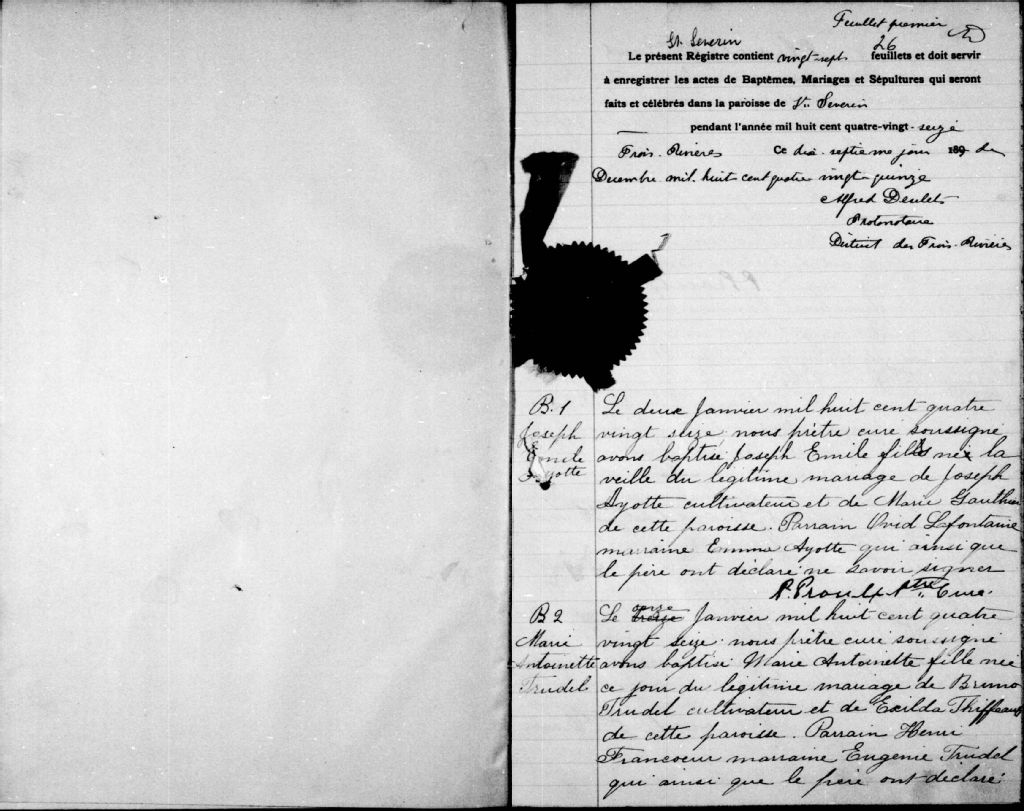 Feuillet premier
St. Severin
26
Le présent Régistre contient vingt-sept feuillets et doit servir
à enregistrer les actes de Baptêmes, Mariages et Sépultures qui seront
faits et célébrés dans la paroisse de St. Severin
pendant l'année mil huit cent quatre-vingt-seize
Trois-Rivières Ce dix-septieme jour 189 de
Decembre mil-huit cent quatre vingt quinze
Alfred
Protonotaire
District des Trois-Rivières
B. 1
Joseph
Emile
Ayotte
Le deux Janvier mil huit cent quatre
vingt seize nous prêtre curé soussigné
avons baptisé Joseph Emile fils né la
veille du légitime mariage de Joseph
Ayotte cultivateur et de Marie Gauthier
de cette paroisse. Parrain Ovid Lafontaine
marraine Emma Ayotte qui ainsi que
le père ont déclaré ne savoir signer
P. Proulx Ptre Curé.
B 2
Marie
Antoinette
Trudel
Le treize onze Janvier mil huit cent quatre
vingt seize nous prêtre curé soussigné
avons baptisé Marie Antoinette fille née
ce jour du légitime mariage de Bruno
Trudel cultivateur et de Exilda Thiffeault
de cette paroisse. Parrain Henri
Francoeur marraine Eugenie Trudel
qui ainsi que le père ont déclaré